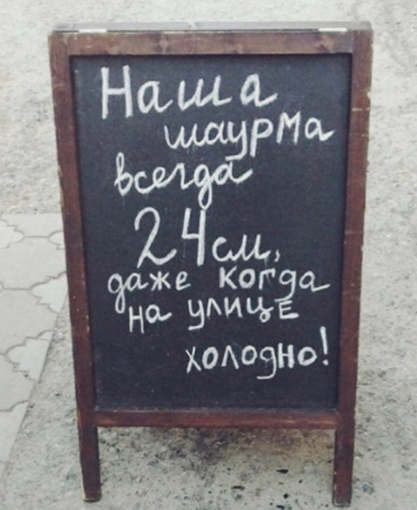 Наша
шаурма
всегда
24см,
даже когда
на улице
холодно!